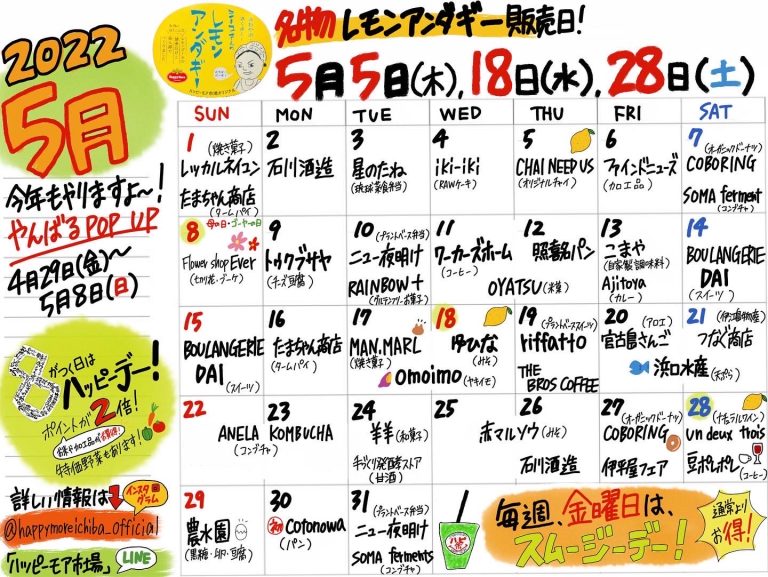 2022
5月
今年もやりますよ～!
やんばるPOP UP
4月29日(金)～
5月8日(日)
8がつく日は
ハッピーデー!
ポイントが2倍!
特価野菜もあります!
詳しい情報は
インスタグラム
@happymoreichiba_official
「ハッピーモア市場」
LINE
レモン
アンダギー
名物レモンアンダギー販売日!
5月5日(木),18日(水),28日(土)
SUN MON TUE WED THU FRI SAT
1
(焼き菓子)
レッカルネイコン
たまちゃん商店
(タームパイ)
2
石川酒造
3
星のたね
(琉球菜食弁当)
4
iki-iki
(RAWケーキ)
5
CHAI NEED US
(オリジナルチャイ)
6
ファインドニューズ
(加工品)
7
(オーガニックドーナツ)
COBORING
SOMA ferment
(コンブチャ)
8
母の日・ゴーヤーの日
Flower shop Ever
(切り花・ブーケ)
9
トゥクブサヤ
(チーズ豆腐)
10
(プラントベース弁当)
ニュー夜明け
RAINBOW+
(グルテンフリーお菓子)
11
ワーカーズホーム
(コーヒー)
12
照喜名パン
OYATSU(米菓)
13
こまや
(自家製調味料)
Ajitoya
(カレー)
14
BOULANGERIE
DAI
(スイーツ)
15
BOULANGERIE
DAI
(スイーツ)
16
たまちゃん商店
(タームパイ)
17
MAN.MARL
(焼き菓子)
18
ゆひな
(みそ)
omoimo
(ヤキイモ)
19
(プラントベーススイーツ)
riffatto
THE
BROS COFFEE
20
(アロエ)
宮古島さんご
浜口水産
(天ぷら)
21
(伊江島物産)
つなぐ商店
22
23
ANELA KOMBUCHA
(コンブチャ)
24
羊羊(和菓子)
手づくり発酵ストア
(甘酒)
25
26
赤マルソウ(みそ)
石川酒造
27
(オーガニックドーナツ)
COBORING
伊平屋フェア
28
(ナチュラルワイン)
un deux trois
豆ポレポレ
(コーヒー)
29
農水園
(黒糖・卵・豆腐)
30
Cotonowa
(パン)
31
(プラントベース弁当)
ニュー夜明け
SOMA ferments
(コンブチャ)
毎週、金曜日は、
スムージーデー!
通常より
お得!